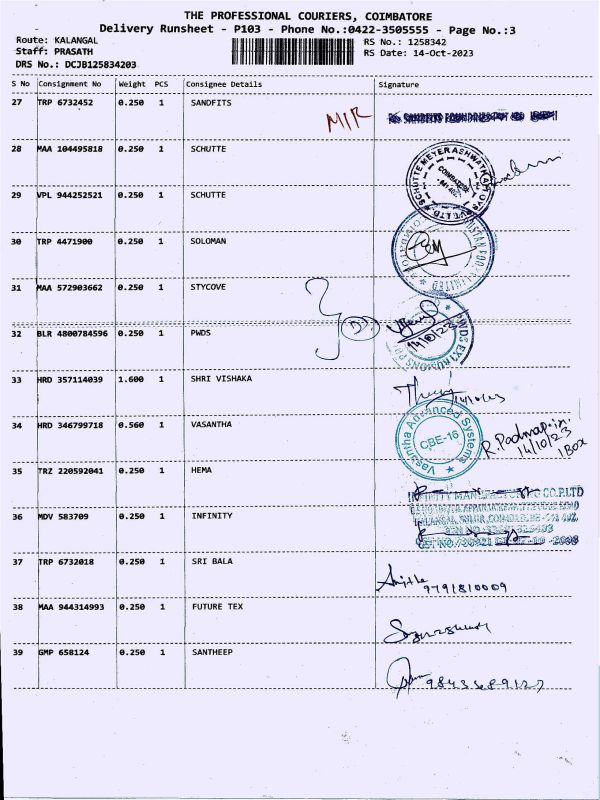 THE PROFESSIONAL COURIERS, COIMBATORE
Delivery Runsheet - P103 - Phone No.:0422-3505555 - Page No.:3
Route: KALANGAL RS No.: 1258342
Staff: PRASATH RS Date: 14-Oct-2023
DRS No.: DCJB125834203
S No Consignment No Weight PCS Consignee Details Signature
27 TRP 6732452 0.250 1 SANDFITS
28 MAA 104495818 0.250 1 SCHUTTE
29 VPL 944252521 0.250 1 SCHUTTE
30 TRP 4471900 0.250 1 SOLOMAN
31 MAA 572903662 0.250 1 STYCOVE
32 BLR 4800784596 0.250 1 PWDS
14/10/23
33 HRD 357114039 1.600 1 SHRI VISHAKA
34 HRD 346799718 0.560 1 VASANTHA
Vasantha Advanced Systems
CBE-16
14/10/23
1 Box
35 TRZ 220592041 0.250 1 HEMA
INFINITY MANUFACTURING CO.P.LTD
36 MDV 583709 0.250 1 INFINITY
37 TRP 6732018 0.250 1 SRI BALA
9791810009
38 MAA 944314993 0.250 1 FUTURE TEX
39 GMP 658124 0.250 1 SANTHEEP